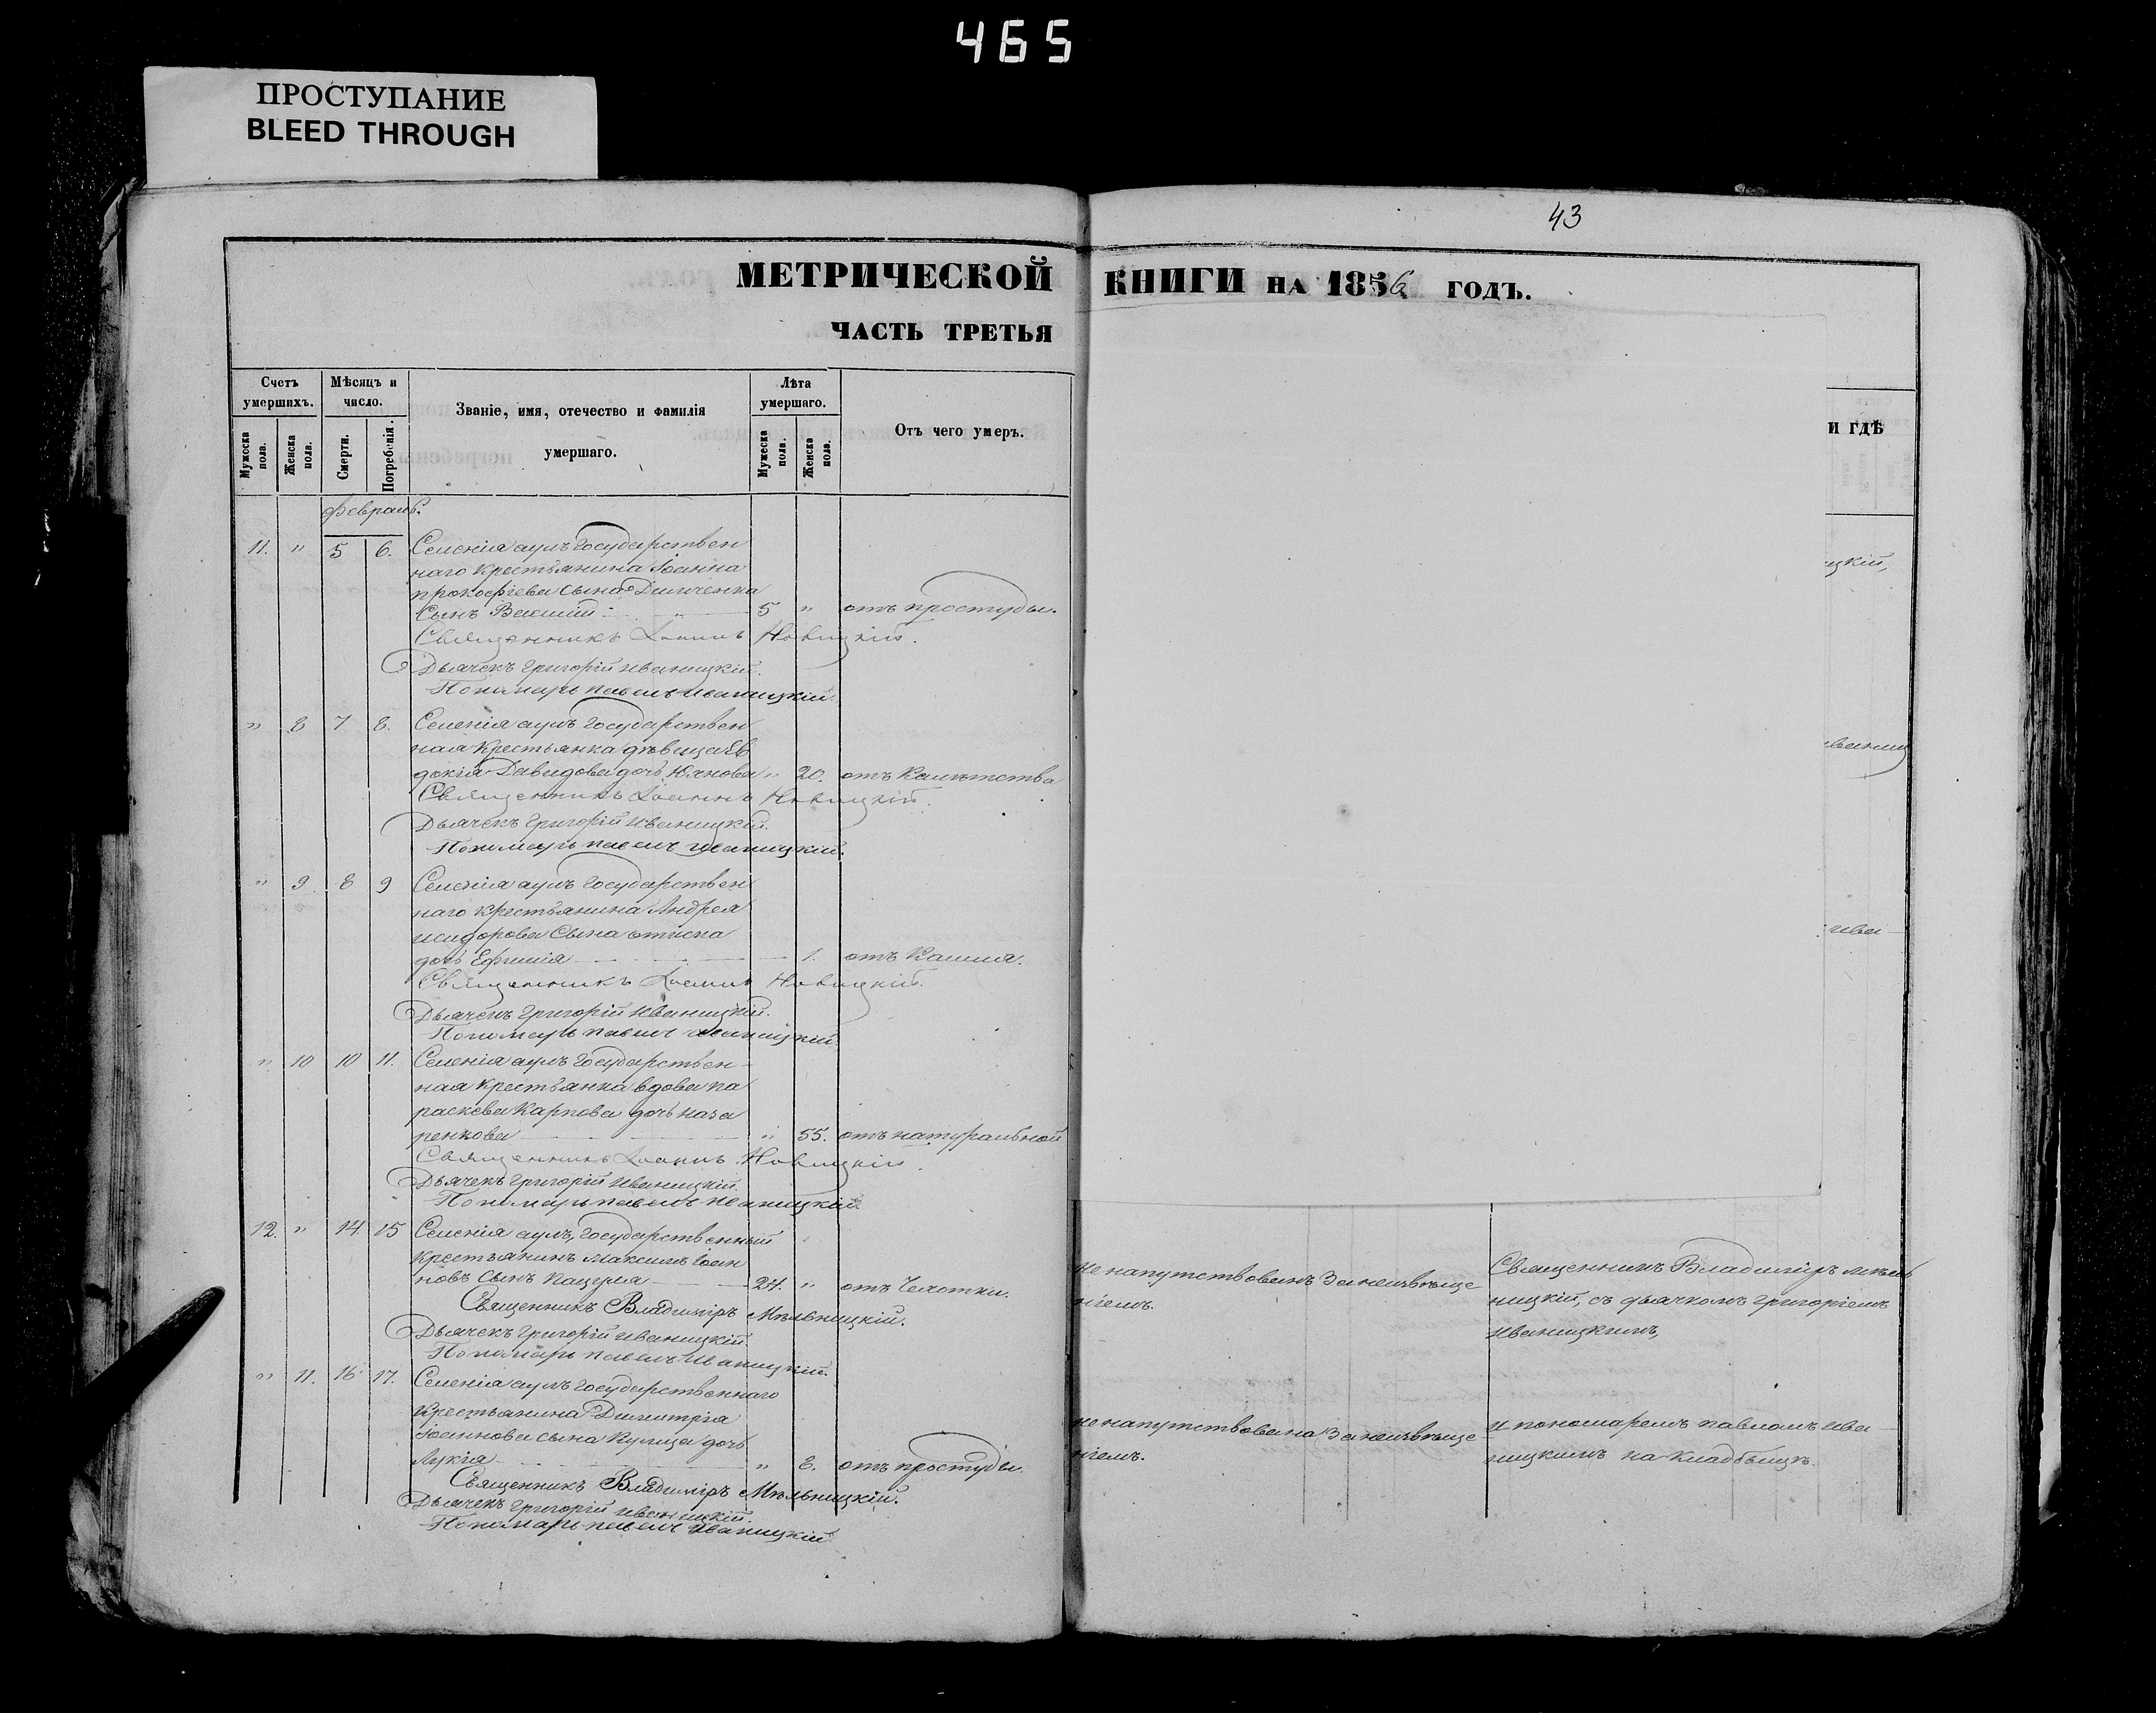 465
ПРОСТУПАНИЕ
BLEED THROUGH
43
МЕТРИЧЕСКОЙ КНИГИ НА 1856 ГОДЪ.
ЧАСТЬ ТРЕТЬЯ
Счетъ умершихъ.
Мужеска пола.
Женска пола.
Мѣсяцъ и число.
Смерти.
Погребенія.
Званіе, имя, отечество и фамилія
умершаго.
Лѣта умершаго.
Мужеска пола.
Женска пола.
Отъ чего умеръ.
И ГДѢ
Февраль.
11. " 5 6. Селенія аулъ Государствен
наго крестьянина Іоанна
прокофіева сына
сынъ 5 " отъ простуды.
Священникъ Іоаннъ Новицкій.
Дьячекъ Григорій Иваницкій.
Пономарь павелъ иваницкій.
" 8 7 8. Селенія аулъ Государствен
ная крестьянка дѣвица Ев
докія Давидова дочь " 20. отъ
Священникъ Іоаннъ Новицкій.
Дьячекъ Григорій Иваницкій.
Пономарь павелъ иваницкій.
" 9. 8 9 Селенія аулъ Государствен
наго крестьянина Андрея
исидорова сына
дочь Ефимія 1. отъ Кашля.
Священникъ Іоаннъ Новицкій.
Дьячекъ Григорій Иваницкій.
Пономарь павелъ иваницкій.
" 10 10 11. Селенія аулъ Государствен-
ная крестьянка вдова па
раскева Карпова дочь наза
ренкова " 55. отъ натуральной
Священникъ Іоаннъ Новицкій.
Дьячекъ Григорій Иваницкій.
Пономарь павелъ иваницкій.
12. " 14. 15 Селенія аулъ, Государственный
крестьянинъ Максимъ Іоан
новъ сынъ Кацуля 24. " отъ Чахотки.
не напутствованъ за неизвѣще
ніемъ.
Священникъ Владиміръ мѣль
ницкій, съ дьячкомъ Григоріемъ
Иваницкимъ,
Священникъ Владиміръ Мѣльницкій.
Дьячекъ Григорій Иваницкій.
Пономарь павелъ Иваницкій.
" 11. 16 17. Селенія аулъ Государственнаго
крестьянина Димитрія
Іоаннова сына Кулиша дочь
Лукія " 8. отъ простуды.
не напутствована за неизвѣще
ніемъ.
и пономаремъ павломъ ива-
ницкимъ на кладбищѣ.
Священникъ Владиміръ Мѣльницкій.
Дьячекъ Григорій Иваницкій.
Пономарь павелъ Иваницкій